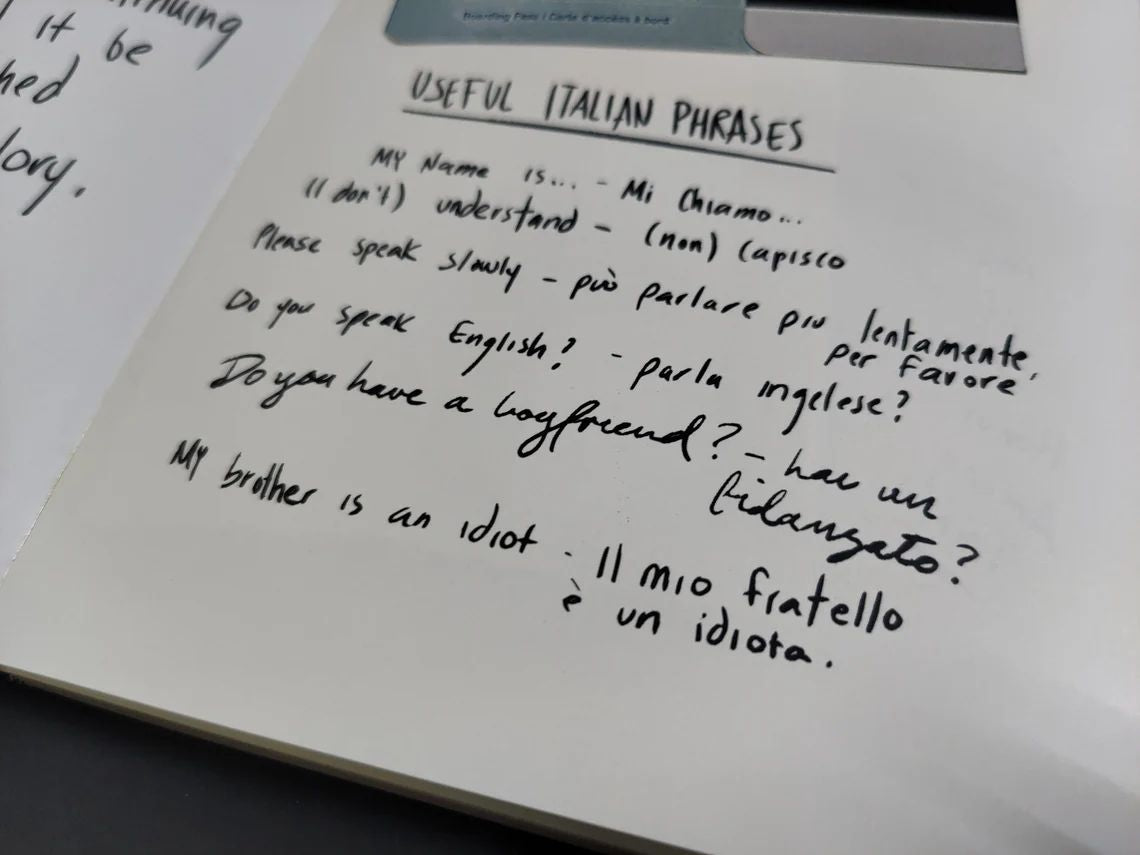 nuing
it be
hed
lory.
Boarding Pass | Carte d'accès à bord
USEFUL ITALIAN PHRASES
My Name is... - Mi Chiamo...
(I don't) understand - (non) Capisco
Please speak slowly - può parlare piu lentamente,
per favore
Do you speak English? - parla ingelese?
Do you have a boyfriend? - hai un
fidanzato?
My brother is an idiot - Il mio fratello
è un idiota.